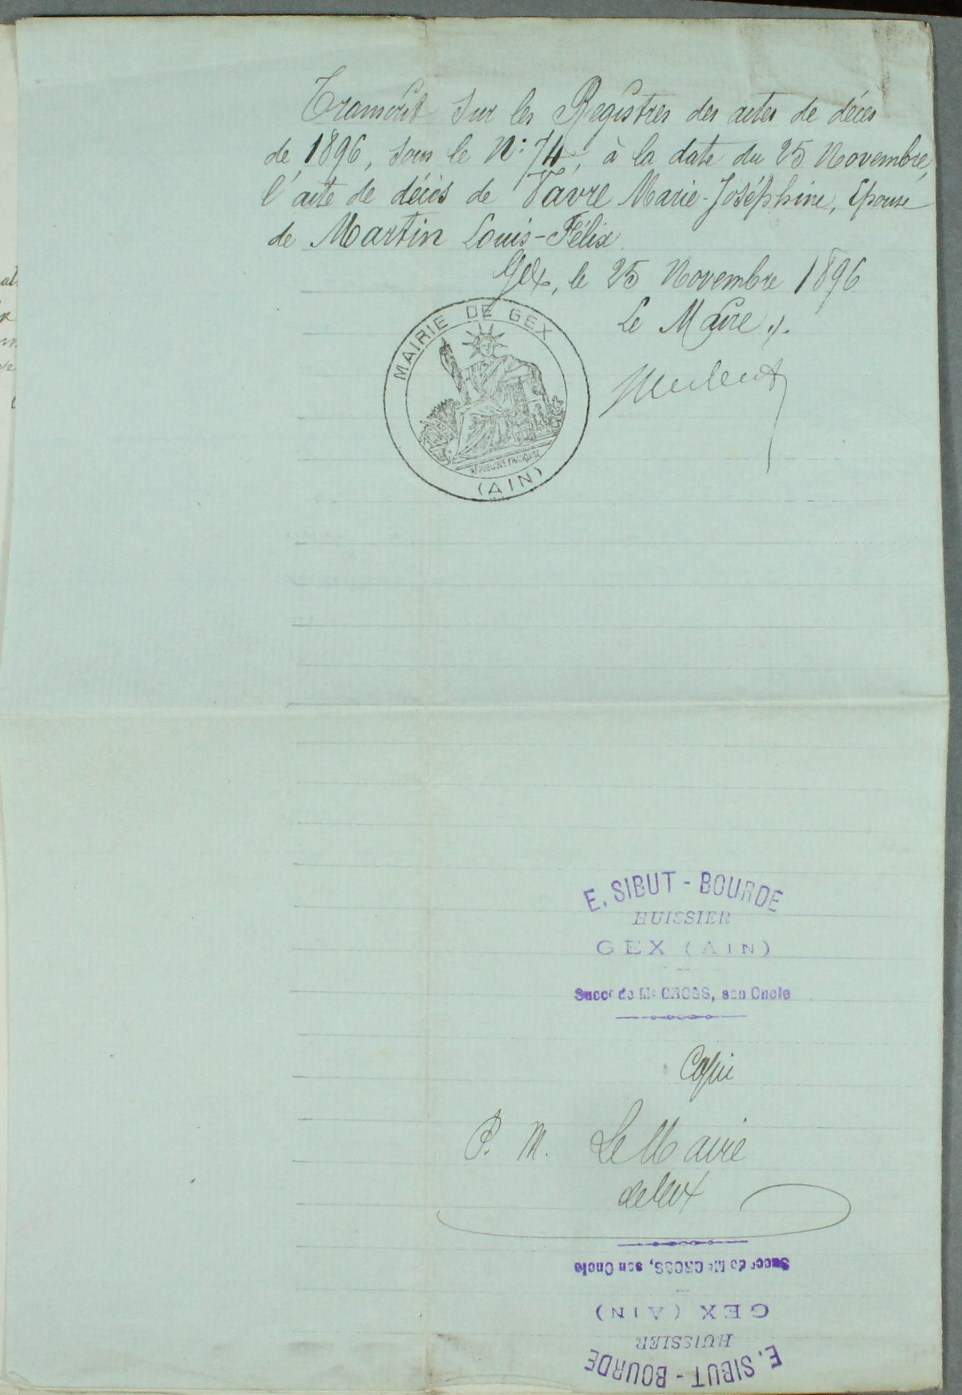 Transcrit sur les Registres des actes de décès
de 1896, sous le N: 74, à la date du 25 Novembre,
l'acte de décès de Favre Marie-Joséphine, Epouse
de Martin Louis-Félix.
Gex, le 25 Novembre 1896
Le Maire,
MAIRIE DE GEX
RÉPUBLIQUE FRANÇAISE
(AIN)
E. SIBUT - BOURDE
HUISSIER
GEX (AIN)
Succr de Me CROSS, son Oncle
Copie
P. M. Le Maire
de Gex
Succr de Me CROSS, son Oncle
GEX (AIN)
HUISSIER
E. SIBUT - BOURDE